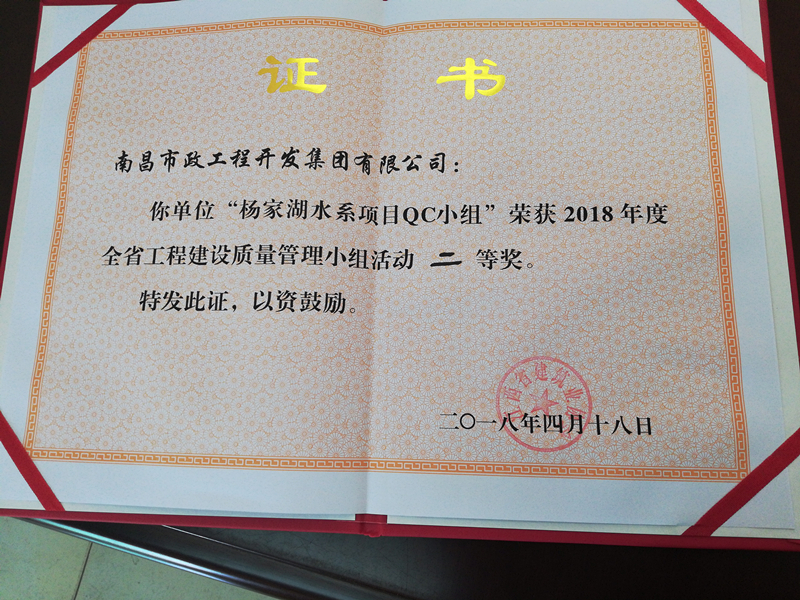 证 书
南昌市政工程开发集团有限公司：
你单位“杨家湖水系项目QC小组”荣获 2018 年度
全省工程建设质量管理小组活动 二 等奖。
特发此证，以资鼓励。
西省建筑业
二〇一八年四月十八日